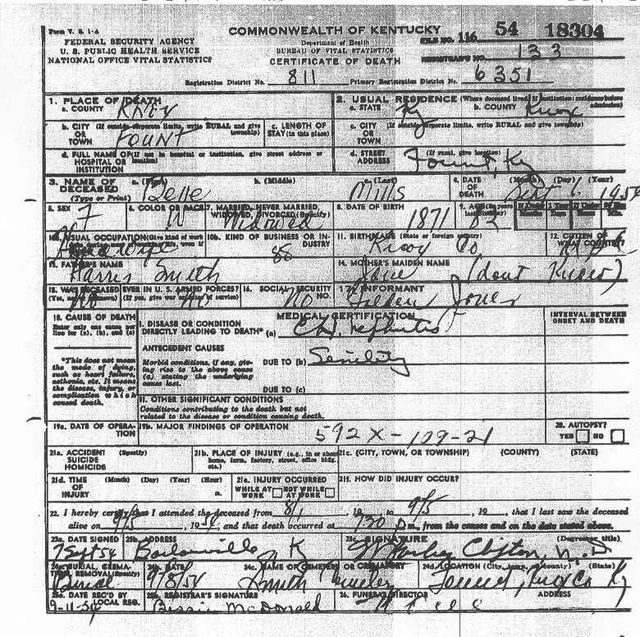 Form V. S. 1-A
COMMONWEALTH OF KENTUCKY
FILE NO. 116 54 18304
FEDERAL SECURITY AGENCY
U. S. PUBLIC HEALTH SERVICE
NATIONAL OFFICE VITAL STATISTICS
Department of Health
BUREAU OF VITAL STATISTICS
CERTIFICATE OF DEATH
REGISTRAR'S NO. 133
Registration District No. 811 Primary Registration District No. 6351
1. PLACE OF DEATH
a. COUNTY Knox
2. USUAL RESIDENCE (Where deceased lived. If institution: residence before admission)
a. STATE Ky b. COUNTY Knox
b. CITY (If outside corporate limits, write RURAL and give township)
OR TOWN FOUNT
c. LENGTH OF STAY (in this place)
c. CITY (If outside corporate limits, write RURAL and give township)
OR TOWN
d. FULL NAME OF (If not in hospital or institution, give street address or location)
HOSPITAL OR INSTITUTION
d. STREET ADDRESS (If rural, give location)
Fount, Ky
3. NAME OF DECEASED (Type or Print)
a. (First) Belle b. (Middle) c. (Last) Mills
4. DATE OF DEATH (Month) (Day) (Year) Sept 6, 1954
5. SEX F
6. COLOR OR RACE W
7. MARRIED, NEVER MARRIED, WIDOWED, DIVORCED (Specify) Widowed
8. DATE OF BIRTH 1871
10a. USUAL OCCUPATION (Give kind of work
10b. KIND OF BUSINESS OR INDUSTRY
11. BIRTHPLACE (State or foreign country) Knox Co
12. CITIZEN OF WHAT COUNTRY?
13. FATHER'S NAME Harris Smith
14. MOTHER'S MAIDEN NAME Jane (dont Know)
15. WAS DECEASED EVER IN U. S. ARMED FORCES?
(Yes, no, or unknown) (If yes, give war or dates of service)
No
16. SOCIAL SECURITY NO. No
17. INFORMANT Jones
18. CAUSE OF DEATH
Enter only one cause per line for (a), (b), and (c)
MEDICAL CERTIFICATION
INTERVAL BETWEEN ONSET AND DEATH
I. DISEASE OR CONDITION DIRECTLY LEADING TO DEATH* (a) Ch. nephritis
*This does not mean the mode of dying, such as heart failure, asthenia, etc. It means the disease, injury, or complication which caused death.
ANTECEDENT CAUSES
Morbid conditions, if any, giving rise to the above cause (a) stating the underlying cause last.
DUE TO (b) Senility
DUE TO (c)
II. OTHER SIGNIFICANT CONDITIONS
Conditions contributing to the death but not related to the disease or condition causing death.
19a. DATE OF OPERATION
19b. MAJOR FINDINGS OF OPERATION
592X-129-21
20. AUTOPSY?
YES NO
21a. ACCIDENT SUICIDE HOMICIDE (Specify)
21b. PLACE OF INJURY (e.g., in or about home, farm, factory, street, office bldg. etc.)
21c. (CITY, TOWN, OR TOWNSHIP) (COUNTY) (STATE)
21d. TIME OF INJURY (Month) (Day) (Year) (Hour) m.
21e. INJURY OCCURRED
WHILE AT WORK NOT WHILE AT WORK
21f. HOW DID INJURY OCCUR?
22. I hereby certify that I attended the deceased from 8/1, 19 to 9/5, 19 , that I last saw the deceased
alive on 9/5 1954, and that death occurred at 730 P m., from the causes and on the date stated above.
23a. DATE SIGNED 7 Sept 54
23b. ADDRESS Barbourville, K
23c. SIGNATURE (Degree or title)
Clifton, M. D
24a. BURIAL, CREMATION, REMOVAL (Specify) Burial
24b. DATE 9/8/54
24c. NAME OF CEMETERY OR CREMATORY Smith
24d. LOCATION (City, town, or county) (State) Fount, Knox Co Ky
25a. DATE REC'D BY LOCAL REG. 9-11-54
25b. REGISTRAR'S SIGNATURE Bessie McDonald
26. FUNERAL DIRECTOR ADDRESS